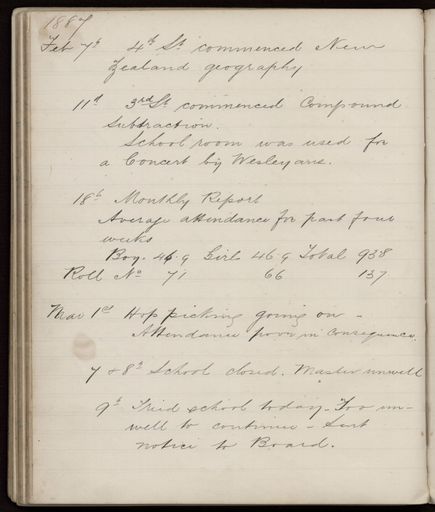 1887
Feb 7th 4th St commenced New
Zealand geography
11th 3rd St commenced Compound
Subtraction.
School room was used for
a Concert by Wesleyans.
18th Monthly Report
Average attendance for past four
weeks
Boy. 46.9 Girls 46.9 Total 93.8
Roll No 71 66 137
Mar 1st Hop picking going on -
Attendance poor in consequence.
7 & 8th School closed. Master unwell
9th Tried school today. Too un-
well to continue - Sent
notice to Board.